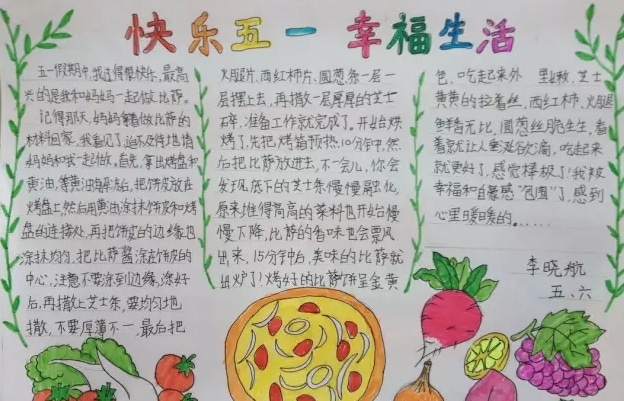 快乐五一 幸福生活
五一假期中,我过得很快乐,最高
兴的是我和妈妈一起做比萨。
记得那天,妈妈拿着做比萨的
材料回家,我看见了,迫不及待地请
妈妈和我一起做,首先,拿出烤盘和
黄油,等黄油解冻后,把饼皮放在
烤盘上,然后用黄油涂抹饼皮和烤
盘的连接处,再把饼皮的边缘也
涂抹均匀,把比萨酱涂在饼皮的
中心,注意不要涂到边缘,涂好
后,再撒上芝士条,要均匀地
撒,不要厚薄不一,最后把
火腿片、西红柿片、圆葱条一层一
层摆上去,再撒一层厚厚的芝士
碎,准备工作就完成了。开始烘
烤了,先把烤箱预热10分钟,然
后把比萨放进去,不一会儿,你会
发现,底下的芝士条慢慢融化,
原来堆得高高的菜料也开始慢
慢下降,比萨的香味也会飘
出来,15分钟后,美味的比萨就
出炉了!烤好的比萨饼呈金黄
色,吃起来外 里嫩,芝士
黄黄的拉着丝,西红柿、火腿
鲜香无比,圆葱丝脆生生,看
着就让人垂涎欲滴,吃起来
就更好了,感觉棒极了!我被
幸福和自豪感"包围"了,感到
心里暖暖的。.....
李晓航
五、六